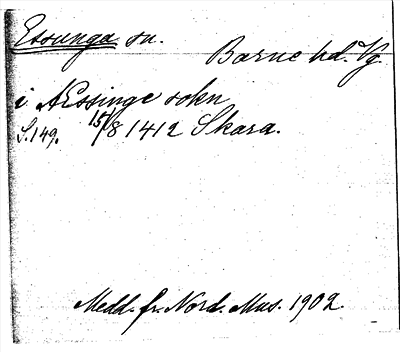 Essunga sn.
Barne hd. Vg.
i AEssinge sokn
S.149. 15/8 1412 Skara.
Medd. fr. Nord. Mus. 1902.